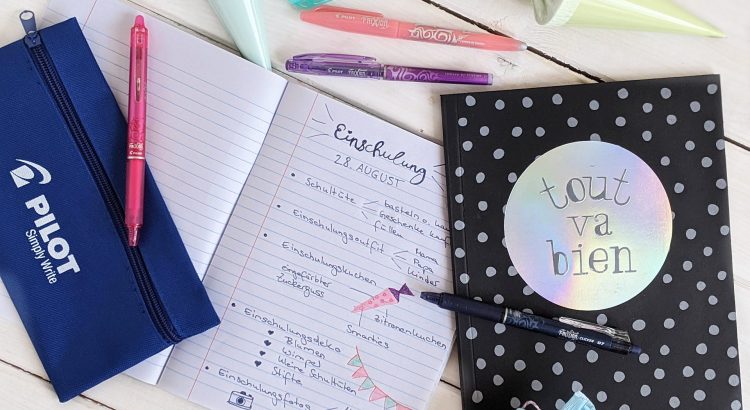 PILOT
Simply Write
PILOT FRIXION
FRIXION
Einschulung
28. AUGUST
• Schultüte
basteln o.
Geschenke
füllen
• Einschulungsoutfit
Mama
Papa
Kinder
• Einschulungskuchen
eingefärbter
Zuckerguss
Smarties
Zitronenkuchen
• Einschulungsdeko
♥ Blumen
♥ Wimpel
♥ kleine Schultüten
♥ Stifte
• Einschulungsfotos
tout
va
bien